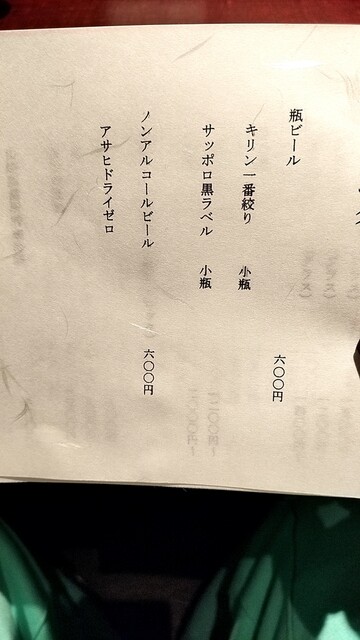 瓶ビール　六〇〇円
キリン一番絞り　小瓶
サッポロ黒ラベル　小瓶
ノンアルコールビール　六〇〇円
アサヒドライゼロ